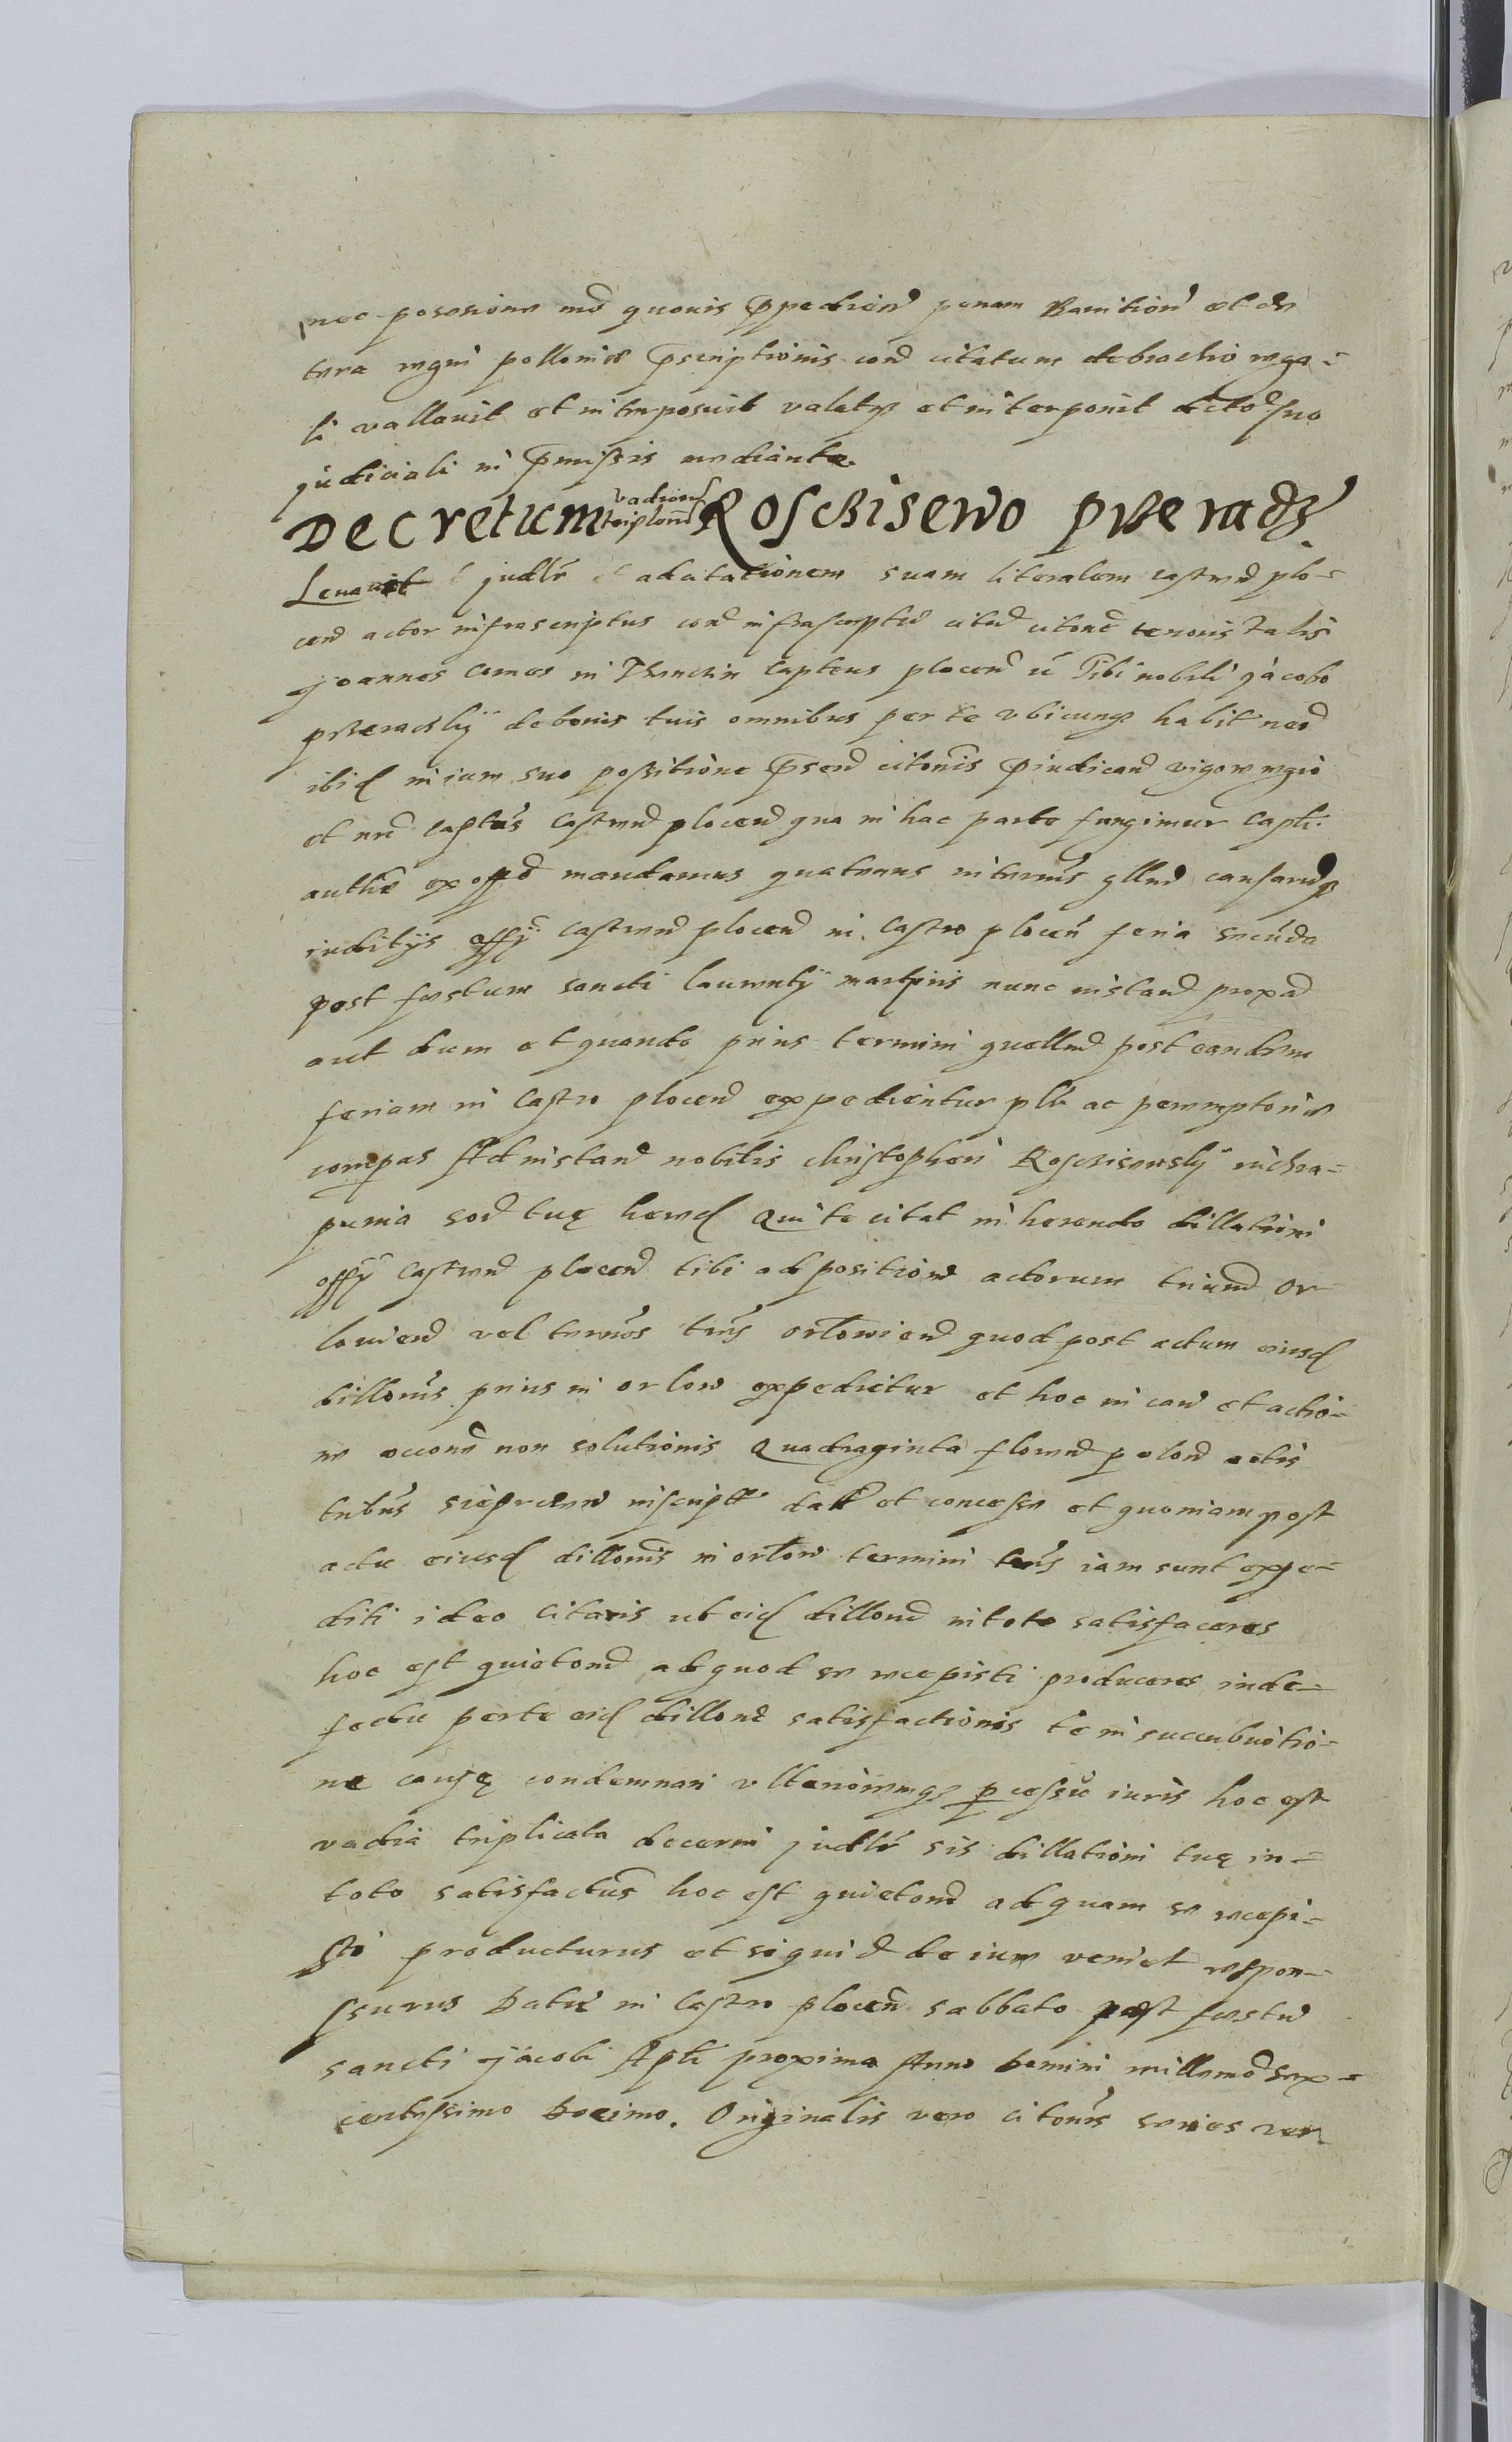 nec possessione mo quouis p̃pedien penam Banition et ex
tera regni pollonię p̃scriptionis con citatum debrachio rega=
li vallauit et interposuit valatqȝ et interponit decto suo
judiciali in p̃missis mediante.
Decretum vadiorũ triplorũ Roschisewo pszeradȝ
Leuauit judlr adcitationem suam literalem castren plo=
cen actor infrascriptus con infrascriptũ citat citone tenoris talis
Joannes comes in Thenczin Capteus plocen ũ Tibi nobili Jacobo
pszeradsky debonis tuis omnibus per te vbicunqȝ habit nec
ibid in ium suo possitione p̃sen citonis p̃iudicand vigore regio
et nrõ captus Castren plocen qua in hac parte fungimur Capti.
authe ex offo mandamus quatenus in terminis qllnd causandqȝ
iuditijs offy castren plocen in Castro plocen feria secunda
post festum sancti laurentij martyris nunc instand proxa
aut dum et quando prius termini quællnd post eandem
feriam in Castro plocen expedientur plr ac peremptorie
compas Ad instand nobilis christophori Roschisewsky in chra=
punia sor tuę hered Qui te citat in herendo dillationi
offy castren plocen tibi ad position actorum triund Or=
lowien vel termos trs orlowien quod post actum eiusd
dillonis prius in orlow expedietur et hoc in cau et actio=
ne occone non solutionis Quadraginta floren polon actis
tribus sieprcen inscript dat et concesse et quoniam post
actu eiusd dillonis in orlow termini trs iam sunt expe=
diti ideo citaris ut eid dillone in toto satisfaceres
hoc est quietone ad quod se recepisti produceres inde=
fectu perte eid dillone satisfactionis te in succubuitio=
ne causę condemnari vlterioremqȝ p̱cessu iuris hoc est
vadia triplicata decerni judlr sis dillationi tuę in=
toto satisfactus hoc est quietone ad quam se recepi=
sti producturus et si quid de iure veniet respon=
ssurus Datũ in Castro plocen sabbato post festũ
sancti Jacobi Apti proxima Anno Domini millemo sex=
centessimo decimo. Originalis vero citonis series ver